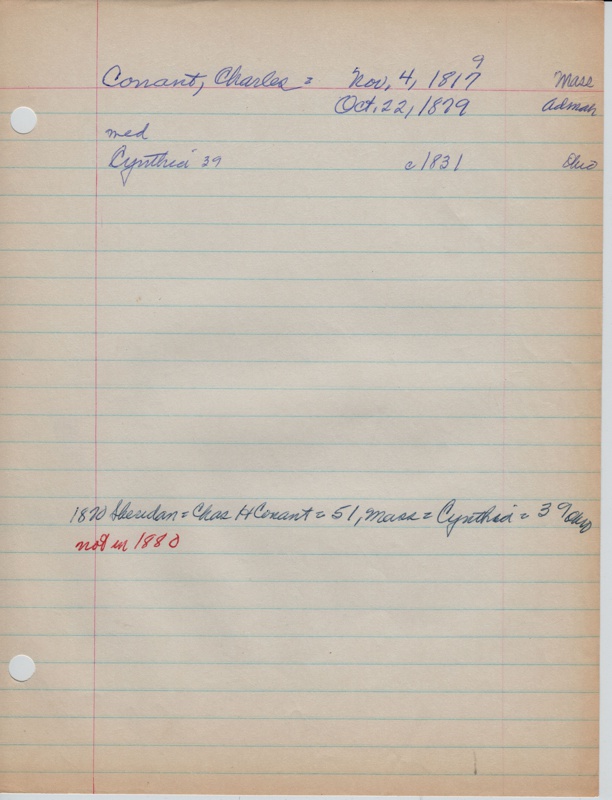 9
Conant, Charles = Nov, 4, 1817 Mass
Oct. 22, 1879 Admah
med
Cynthia 39 c 1831 Ohio
1870 Sheridan = Chas H Conant = 51, Mass = Cynthia = 39 Ohio
not in 1880